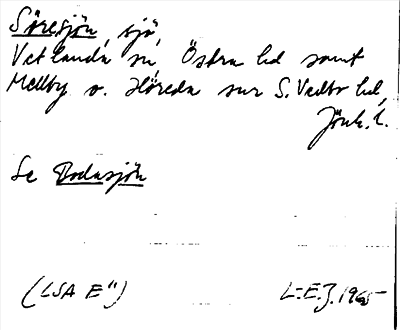 Söresjön, sjö,
Vetlanda sn, Östra hd samt
Mellby o. Höreda snr S. Vedbo hd,
Jönk. l.
Se Bodasjön
(LSA E")
L-E.J. 1965